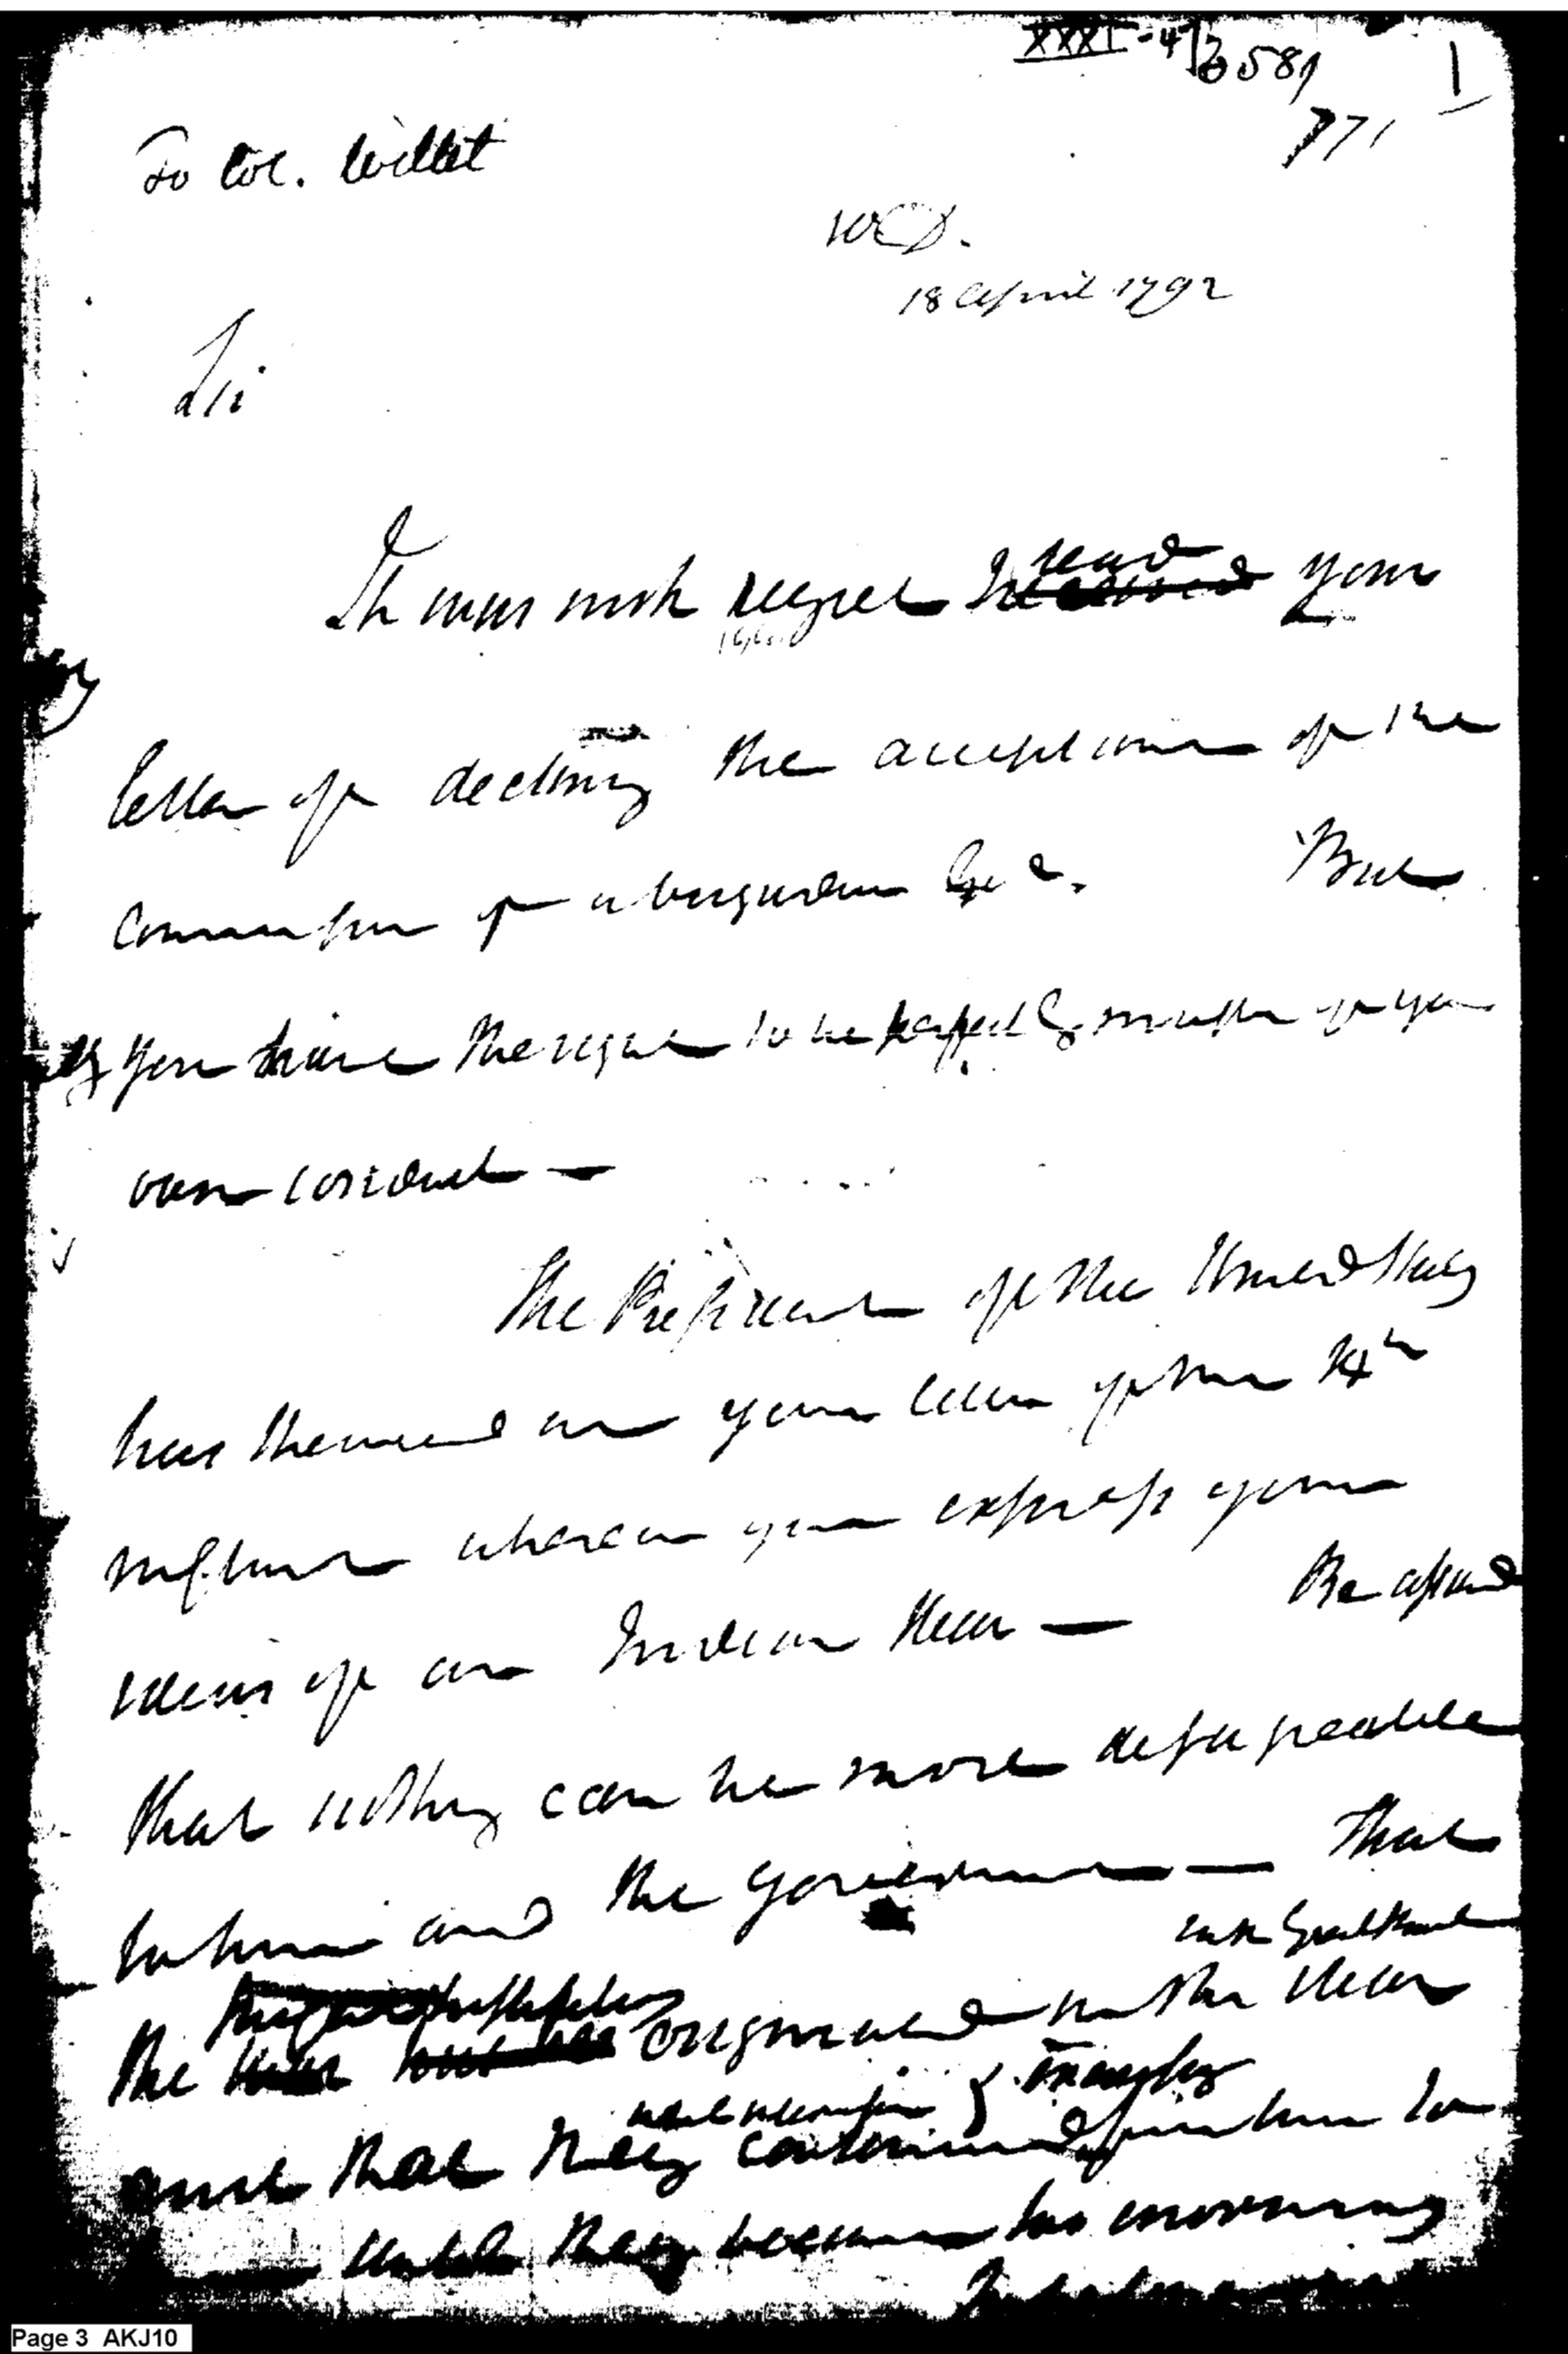 XXXI-47 581
771
1
To Col. Willet
W.D.
18 April 1792
Sir
It was with regret I read received your
letter of declining the acceptance of the
Commission of a brigadier Ge
But
you have the right to be perfectly master of your
own conduct —
The President of the United States
has on your letter of the 14th
instant wherein you express your
ideas of an Indian War — Be assured
that nothing can be more disagreeable
to him and the Government — That
with Great
the hostilities originated in the War
and that they continued from time to
until they became too
Page 3 AKJ10